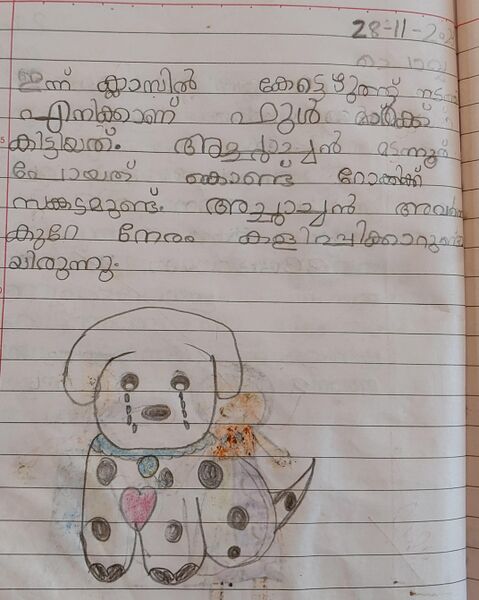 28-11-202
ഇന്ന് ക്ലാസിൽ കേട്ടെഴുത്ത് നട
എനിക്കാണ് ഫുൾ മാർക്ക്
കിട്ടിയത്. അച്ചാച്ചൻ മടന്നൂർ
പോയത് കൊണ്ട് റോക്കിക്ക്
സങ്കടമുണ്ട്. അച്ചാച്ചൻ അവനെ
കുറേ നേരം കളിപ്പിക്കാറു
യിരുന്നു.